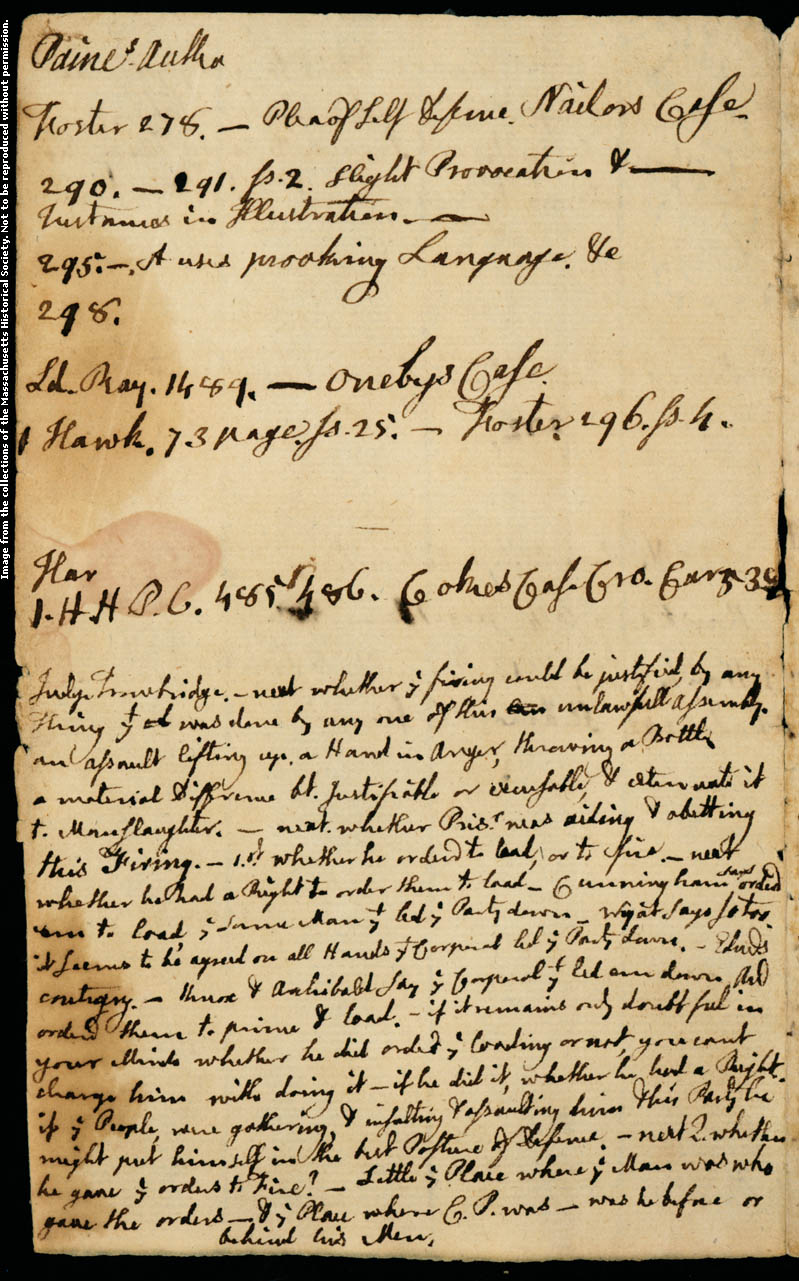 Paines Autho
Foster 278. — Plea of Self Defence. Nailors Case.
290. — 291. ss. 2. slight Provocation & —
Instances in Illustration. —
295. —. A uses provoking Language. &c
298.
Ld. Ray. 1489. — Onebys Case.
1 Hawk. 73 page. ss. 25. — Foster. 296. ss. 4.
Har
1. H.H P.C. 485. 486. Cokes Case Cro. Car.
Judge Trowbridge. — next whether ye firing could be justified, by any
Thing yt was done by any one of this unlawfull Assembly.
an assault lifting up, a Hand in Anger, throwing a Bottle
a material Difference bt. Justifiable or excusable, & extenuate it
to Manslaughter. — next. whether Prisr was aiding & abetting
this Firing. — 1.st whether he orderd to load, or to fire. — next
whether he had a Right to order them to load — Cunningham says orderd
em to load, ye same Man yt led ye Party down — Wyat says so too.
it seems to be agreed on all Hands yt Corporal led ye Party down. —
contrary. — Knox & Archibald say ye Corporal yt led em down, did
orderd them to prime & load. — if it remains only doubtful in
your Minds whether he did order ye loading or not, you cant
charge him with doing it — if he did it, whether he had a Right.
if ye People, were gathering, & insulting & assaulting him & his Party he
might put himself in the best Posture of Defence. — next Q. whether
he gave ye orders to Fire? — Settle ye Place where ye Man was who
gave the orders — & ye Place where C. P. was — was he before or
behind his Men.
Image from the collections of the Massachusetts Historical Society. Not to be reproduced without permission.